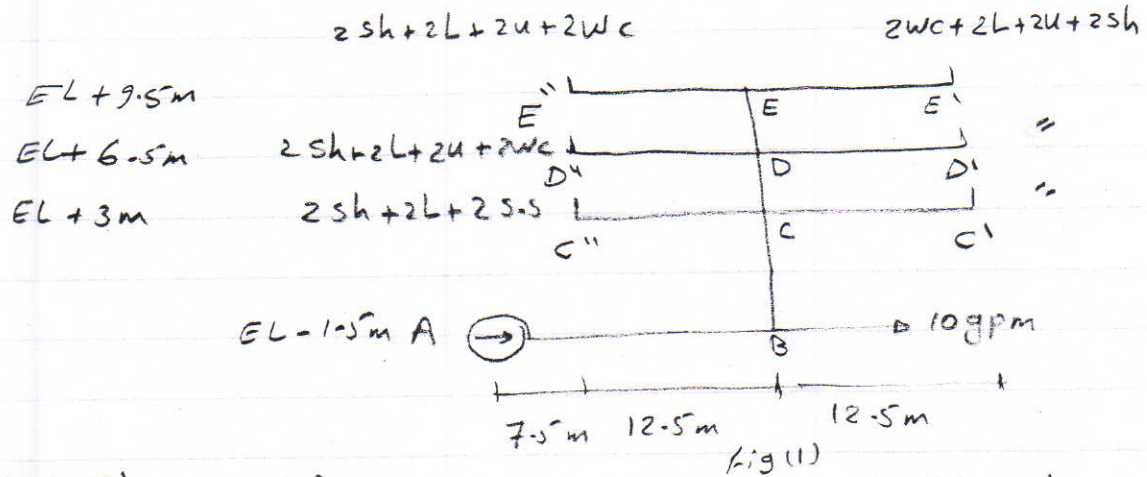 2sh+2L+2u+2Wc 2Wc+2L+2U+2sh
EL+9.5m E" E E'
EL+6.5m 2sh+2L+2u+2Wc D" D D' "
EL+3m 2sh+2L+2s.s C" C C' "
EL-1.5m A B 10gpm
7.5m 12.5m 12.5m
fig(1)